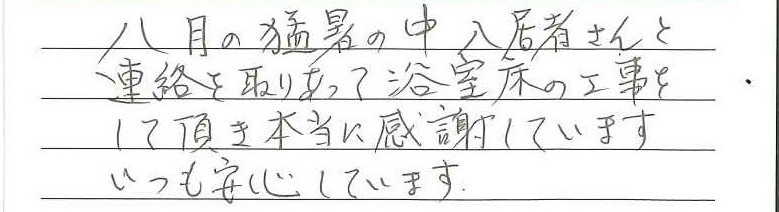 八月の猛暑の中入居者さんと
連絡を取りあって浴室床の工事を
して頂き本当に感謝しています
いつも安心しています.